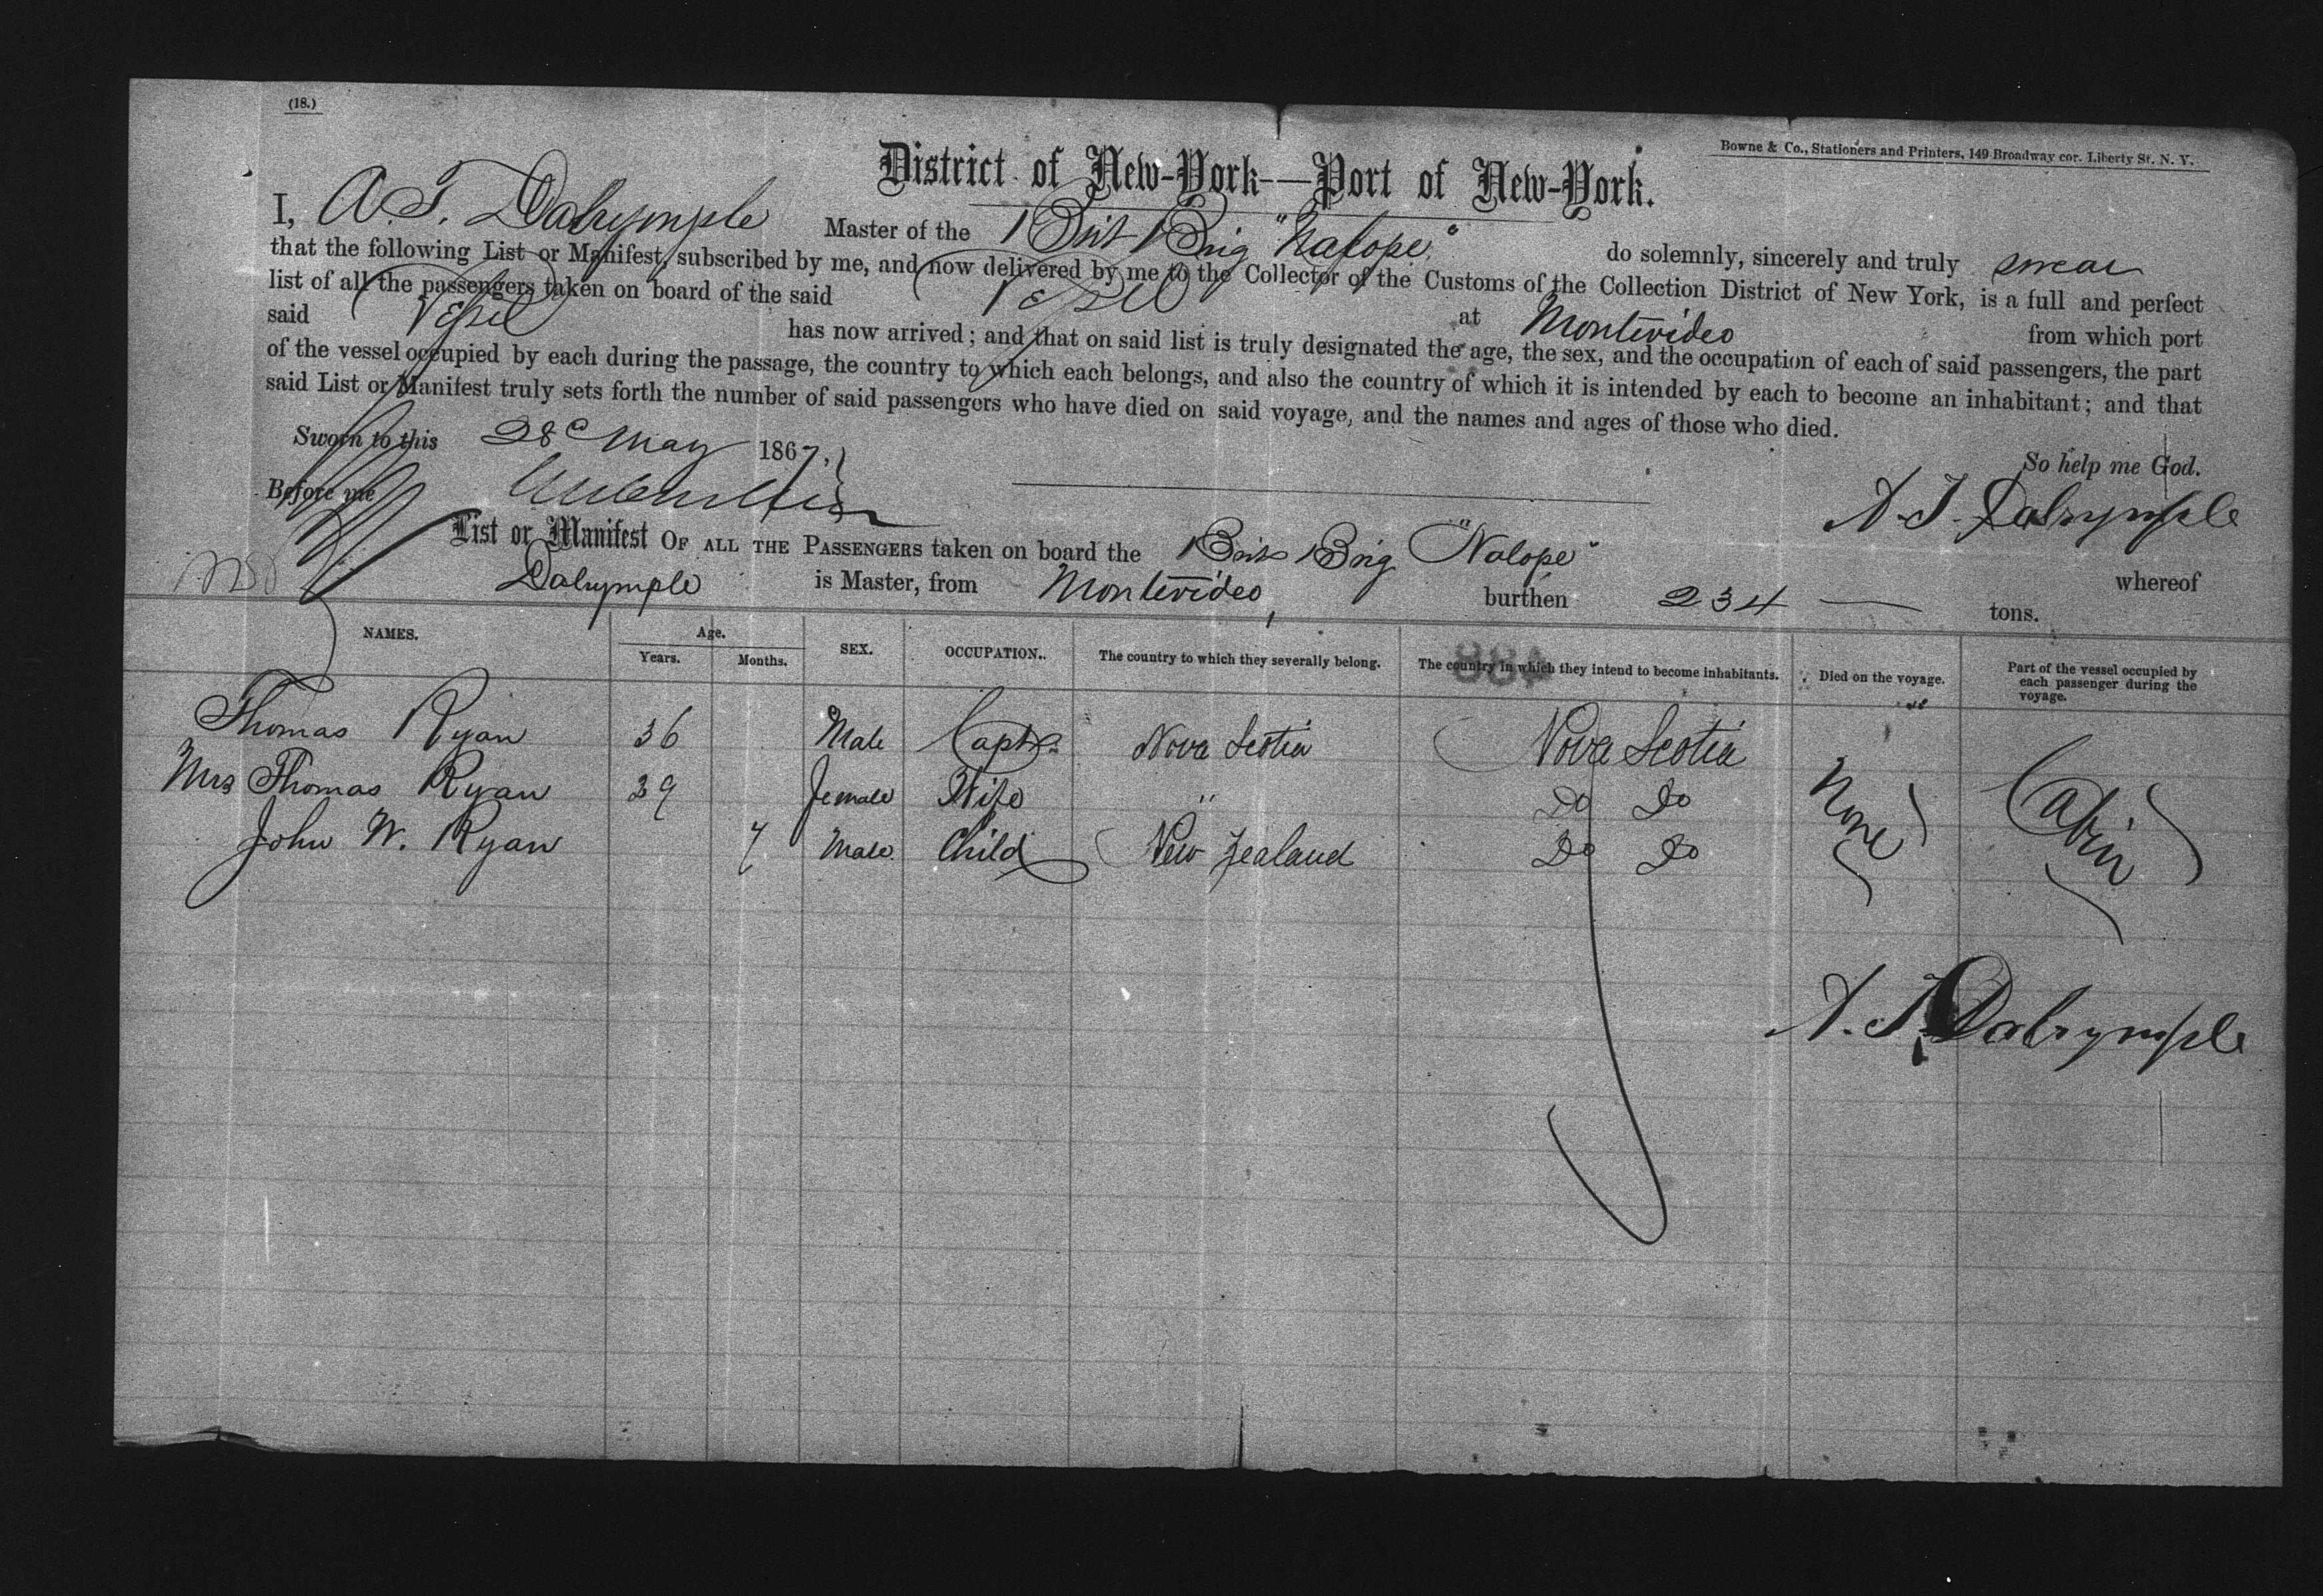 (18.)
Bowne & Co., Stationers and Printers, 149 Broadway cor. Liberty St. N. Y.
District of New-York—Port of New-York.
I, A. T. Dalrymple Master of the Brit Brig "Nalope" do solemnly, sincerely and truly swear
that the following List or Manifest, subscribed by me, and now delivered by me to the Collector of the Customs of the Collection District of New York, is a full and perfect
list of all the passengers taken on board of the said Vessel at Montevideo from which port
said Vessel has now arrived; and that on said list is truly designated the age, the sex, and the occupation of each of said passengers, the part
of the vessel occupied by each during the passage, the country to which each belongs, and also the country of which it is intended by each to become an inhabitant; and that
said List or Manifest truly sets forth the number of said passengers who have died on said voyage, and the names and ages of those who died.
Sworn to this 28 May 1867,
So help me God.
Before me
A. T. Dalrymple
List or Manifest OF ALL THE PASSENGERS taken on board the Brit Brig "Nalope" whereof
Dalrymple is Master, from Montevideo, burthen 234 — tons.
NAMES. Age. Years. Months. SEX. OCCUPATION. The country to which they severally belong. The country in which they intend to become inhabitants. Died on the voyage. Part of the vessel occupied by each passenger during the voyage.
Thomas Ryan 36 Male Capt Nova Scotia Nova Scotia
Mrs Thomas Ryan 39 female Wife " Do Do None Cabin
John W. Ryan 7 Male Child New Zealand Do Do
A. T. Dalrymple